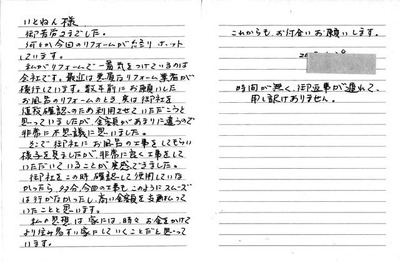 いとねん 様
御苦労さまでした。
何とか今回のリフォームが終り ホット
しています。
私がリフォームで一番気をつけているのは
会社です。最近は悪質なリフォーム業者が
横行しています。数年前にお願いした
お風呂のリフォームのとき、実は御社を
値段確認のため利用させていただこうと
思っていましたが、金額があまりに違うので
非常に不思議に思いました。
そこで御社に お風呂の工事をしてもらい
様子を見ましたが、非常に良く工事をして
いただいていることが実感できました。
御社をこの時 確認して使用していな
かったら、多分、今回の工事も このようにスムーズに
は行かなかったし、高い金額を支払って
いたことと思います。
私の思想は 家には、時々 お金をかけて
より住み易すい家にしていくことだと思って
います。
これからも、お付合いお願いします。
時間が無く、御返事が遅れて、
申し訳けありません。